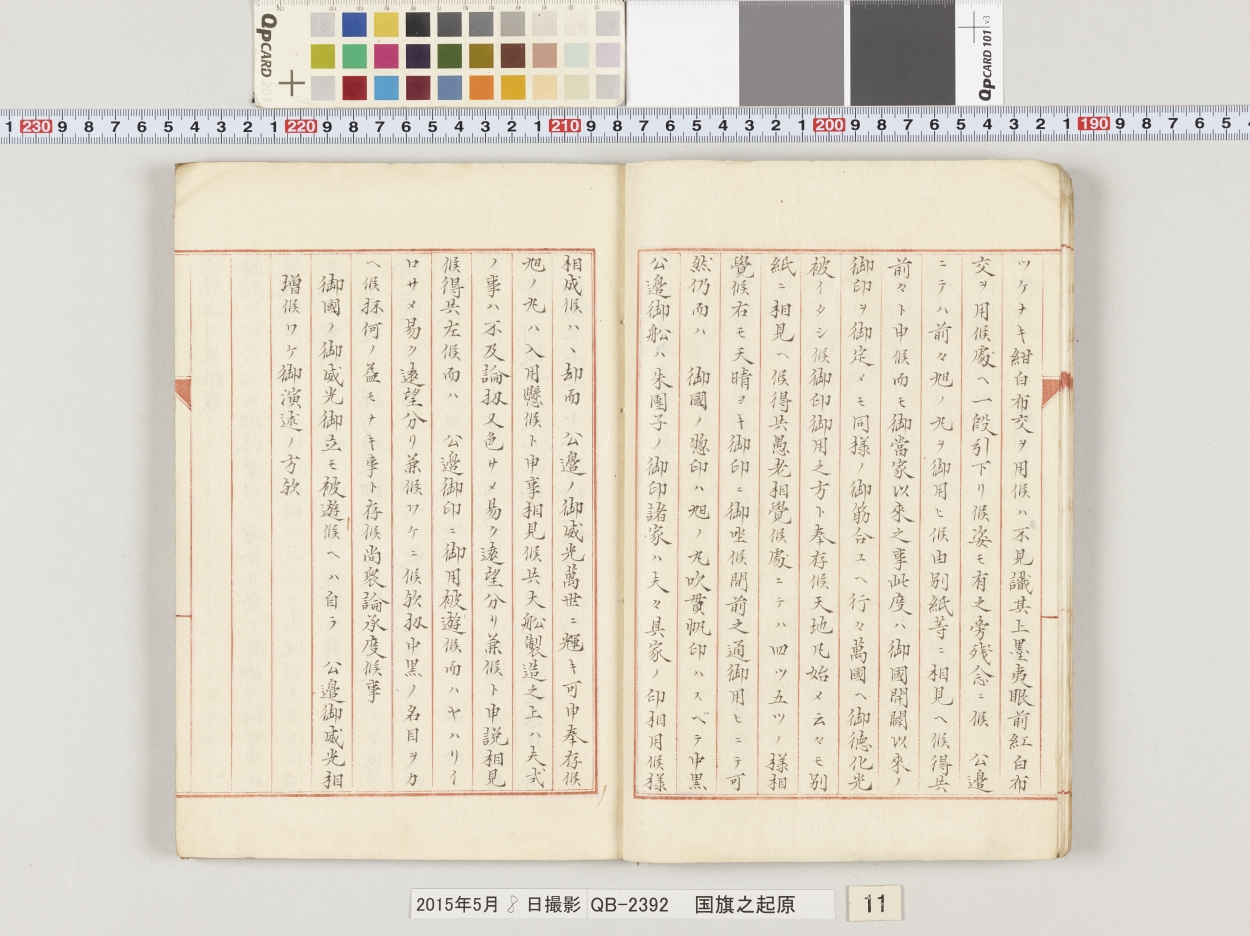 OpCARD 201
OpCARD 101 v3
1 230 9 8 7 6 5 4 3 2 1 220 9 8 7 6 5 4 3 2 1 210 9 8 7 6 5 4 3 2 1 200 9 8 7 6 5 4 3 2 1 190 9 8 7 6 5
ツケナキ紺白布交ヲ用候ハ不見識其上墨夷眼前紅白布
交ヲ用候處ヘ一段引下リ候姿モ有之旁残念ニ候　公邊
ニテハ前々旭ノ丸ヲ御用ヒ候由別紙等ニ相見ヘ候得共
前々ト申候而モ御當家以來之事此度ハ御國開闢以來ノ
御印ヲ御定メモ同様ノ御筋合ユヘ行々萬國ヘ御徳化光
被イタシ候御印御用之方ト奉存候天地凡始メ云々モ別
紙ニ相見ヘ候得共愚老相覺候處ニテハ四ツ五ツノ様相
覺候右モ天晴ヲキ御印ニ御坐候間前之通御用ヒニテ可
然仍而ハ　御國ノ惣印ハ旭ノ丸吹貫帆印ハスベテ中黒
公邊御船ハ朱團子ノ御印諸家ハ夫々其家ノ印相用候様
相成候ハヽ却而　公邊ノ御威光萬世ニ輝キ可申奉存候
旭ノ丸ハ入用懸候ト申事相見候共大船製造之上ハ夫式
ノ事ハ不及論扨又色サメ易ク遠望分リ兼候ト申説相見
候得共左候而ハ　公邊御印ニ御用被遊候而ハヤハリイ
ロサメ易ク遠望分リ兼候ワケニ候欤扨中黒ノ名目ヲカ
ヘ候抹何ノ益モナキ事ト存候尚衆論承度候事
御國ノ御威光御立モ被遊候ヘハ自ラ　公邊御威光相
増候ワケ御演述ノ方欤
2015年5月 8 日撮影 QB-2392 国旗之起原
11